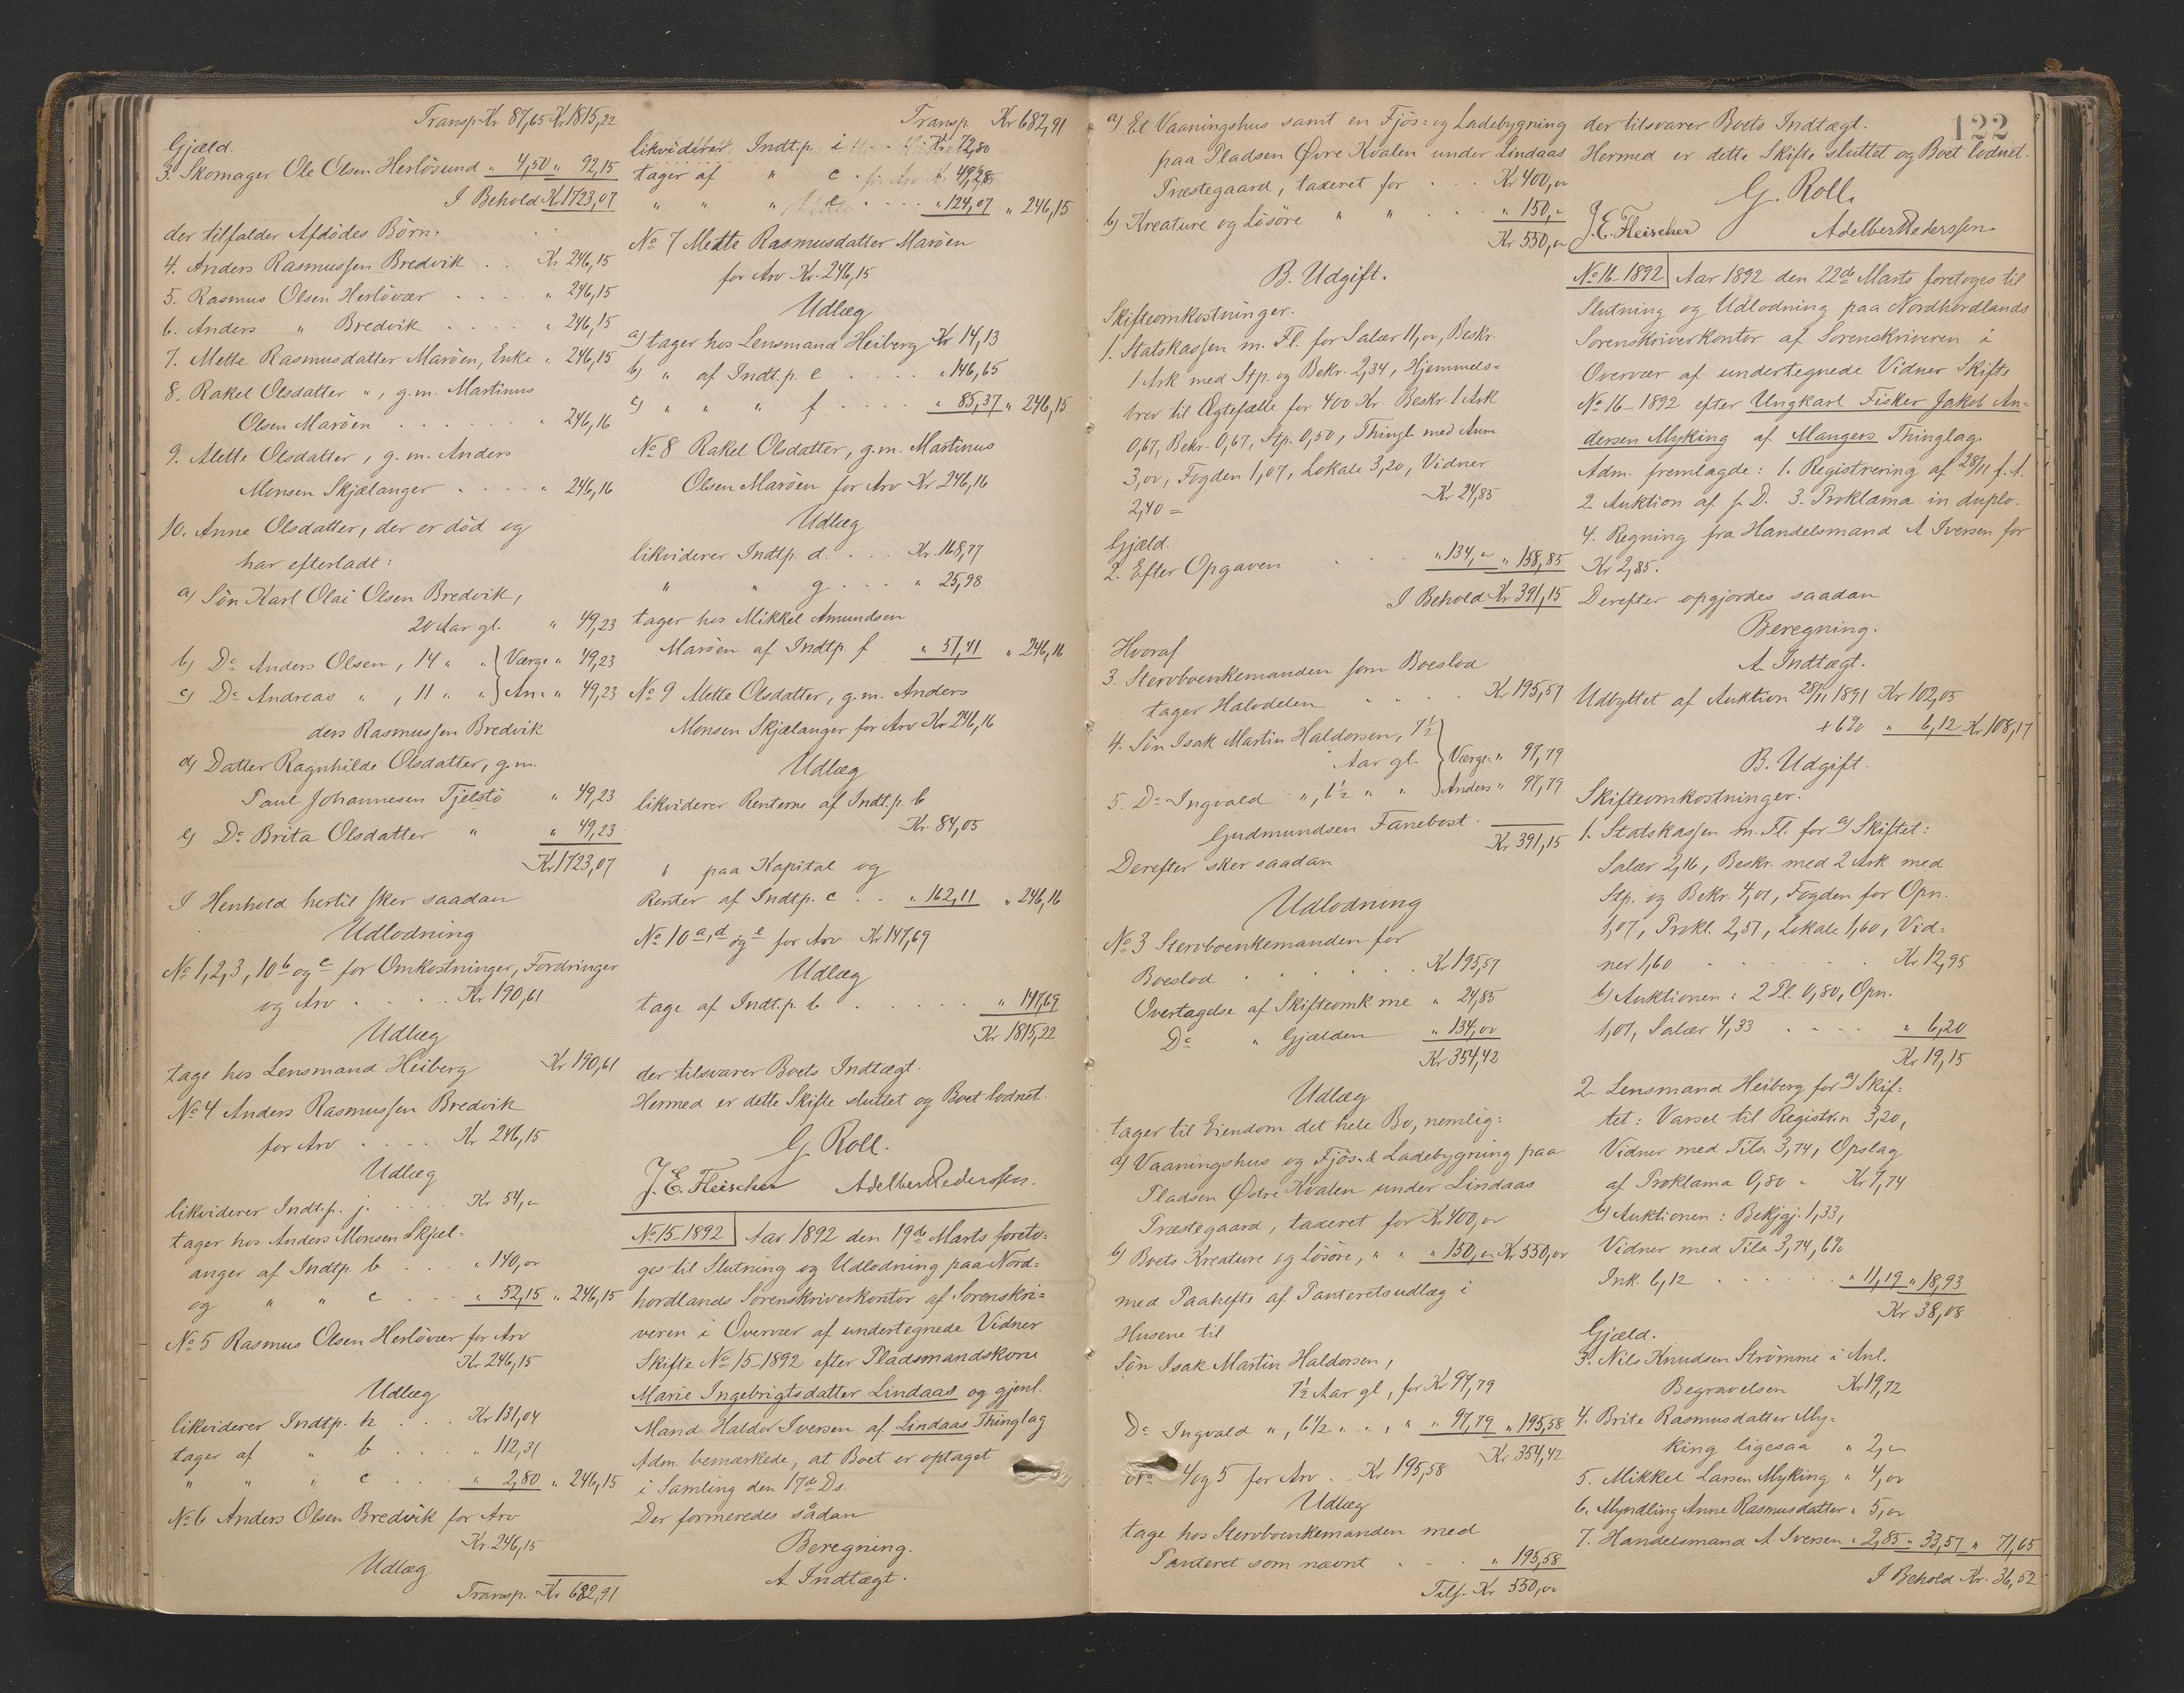 Transp. Kr. 87,65 Kr 1815,22
Gjæld.
3. Skomager Ole Olsen Herlösund " 4,50 " 92,15
I Behold Kr. 1723,07
der tilfalder Afdödes Börn:
4. Anders Rasmussen Bredvik . . Kr. 246,15
5. Rasmus Olsen Herlövær . . . . " 246,15
6. Anders " Bredvik . . . . " 246,15
7. Mette Rasmusdatter Maröen, Enke " 246,15
8. Rakel Olsdatter ", g. m. Martinus
Olsen Maröen . . . . . . " 246,16
9. Alette Olsdatter, g. m. Anders
Monsen Skjælanger . . . . . " 246,16
10. Anne Olsdatter, der er död og
har efterladt:
a) Sön Karl Olai Olsen Bredvik,
20 Aar gl. " 49,23
b) Do Anders Olsen, 14 " " } Værge " 49,23
c) Do Andreas " , 11 " " } An= " 49,23
ders Rasmussen Bredvik
d) Datter Ragnhilde Olsdatter, g. m.
Paul Johannesen Tjelstö " 49,23
e) Do Brita Olsdatter " " 49,23
Kr 1723,07
I Henhold hertil sker saadan
Udlodning
No 1, 2, 3, 10 b og c for Omkostninger, Fordringer
og Arv . . . . . Kr 190,61
Udlæg
tage hos Lensmand Heiberg Kr 190,61
No 4 Anders Rasmussen Bredvik
for Arv . . . . . Kr 246,15
Udlæg
likviderer Indt. p. j. . . . . Kr 54,"
tager hos Anders Monsen Skjæl-
anger af Indtp. b . . . " 140,00
og " " c . . . " 52,15 " 246,15
No 5 Rasmus Olsen Herlövær for Arv
Kr 246,15
Udlæg
likviderer Indtp. h . . . Kr 131,04
tager af " b . . . . " 112,31
" " " c . . . " 2,80 " 246,15
No 6 Anders Olsen Bredvik for Arv
Kr. 246,15
Udlæg
Transp. Kr 682,91
Transp Kr 682,91
likviderer Indt. p. i . . . Kr 72,80
tager af " c . . . 49,28
" " " e . . . . " 124,07 " 246,15
No 7 Mette Rasmusdatter Maröen
for Arv Kr. 246,15
Udlæg
a) tager hos Lensmand Heiberg Kr 14,13
b) " af Indt. p. e . . . . " 146,65
c) " " " f . . . . " 85,37 " 246,15
No 8 Rakel Olsdatter, g. m. Martinus
Olsen Maröen for Arv Kr 246,16
Udlæg
likviderer Indtp. d. . . . Kr. 168,77
" " g . . . " 25,98
tager hos Mikkel Amundsen
Maröen af Indtp. f " 51,41 " 246,16
No 9 Alette Olsdatter, g. m. Anders
Monsen Skjælanger for Arv Kr 246,16
Udlæg
likviderer Renterne af Indt. p. b
Kr. 84,05
" paa Kapital og
Renter af Indtp. c . . " 162,11 " 246,16
No 10 a, d og e for Arv Kr 147,69
Udlæg
tage af Indt. p. b . . . . . . " 147,69
Kr 1815,22
der tilsvarer Boets Indtægt.
Hermed er dette Skifte sluttet og Boet lodnet.
G. Roll.
J. E. Fleischer Adelber Pederssen.
No 15-1892 Aar 1892 den 19de Marts foreto-
ges til Slutning og Udlodning paa Nord=
hordlands Sorenskriverkontor af Sorenskri=
veren i Overvær af undertegnede Vidner
Skifte No 15-1892 efter Pladsmandskone
Marie Ingebrigtsdatter Lindaas og gjenl.
Mand Haldor Iversen af Lindaas Thinglag
Adm. bemærkede, at Boet er optaget
i Samling den 17de Ds.
Der formeredes sådan
Beregning.
A Indtægt.
a) Et Vaaningshus samt en Fjös= og Ladebygning
paa Pladsen Øvre Kvalen under Lindaas
Præstegaard, taxeret for . . . Kr 400,00
b) Kreature og Lösöre " " . . . " 150,"
Kr 550,00
B. Udgift.
Skifteomkostninger.
1. Statskassen m. Fl. for Salær 11,00, Beskr.
1 Ark med Stp. og Bekr. 2,34, Hjemmels=
brev til Ægtefælle for 400 Kr. Beskr. 1 Ark
0,67, Bekr. 0,67, Stp. 0,50, Thingl. med Anm
3,00, Fogden 1,07, Lokale 3,20, Vidner
2,40 = Kr 24,85
Gjæld.
2. Efter Opgaven . . . " 134," " 158,85
I Behold Kr 391,15
Hvoraf
3. Stervboenkemanden som Boeslod
tager Halvdelen . . . Kr 195,57
4. Sön Isak Martin Haldorsen, 7½
Aar gl. } Værge: " 97,79
5. Do Ingvald ", 6½ " " } Anders " 97,79
Gudmundsen Fanebost. Kr 391,15
Derefter sker saadan
Udlodning
No 3 Stervboenkemanden for
Boeslod . . . . . . Kr 195,57
Overtagelse af Skifteomk ne " 24,85
Do " Gjælden " 134,00
Kr 354,42
Udlæg
tager til Eiendom det hele Bo, nemlig:
a) Vaaningshus og Fjös- & Ladebygning paa
Pladsen Øvre Kvalen under Lindaas
Præstegaard, taxeret for Kr 400,00
b) Boets Kreature og Lösöre, " " " 150,00 Kr 550,00
med Paahefte af Panteretsudlæg i
Husene til
Sön Isak Martin Haldorsen,
7½ Aar gl, for Kr 97,79
Do Ingvald ", 6½ " ", " " 97,79 " 195,58
Kr 354,42
No 4 og 5 for Arv . Kr 195,58
Udlæg
tage hos Stervboenkemanden med
Panteret som nævnt . . . " 195,58
Tils. Kr 550,00
122
der tilsvarer Boets Indtægt.
Hermed er dette Skifte sluttet og Boet lodnet.
G. Roll.
J. E. Fleischer Adelber Pederssen
No 16-1892 Aar 1892 den 22de Marts foretoges til
Slutning og Udlodning paa Nordhordlands
Sorenskriverkontor af Sorenskriveren i
Overvær af undertegnede Vidner Skifte
No 16-1892 efter Ungkarl Fisker Jakob An=
dersen Myking af Mangers Thinglag.
Adm. fremlagde: 1. Registrering af 28/11 f. A.
2. Auktion af s. D. 3. Proklama in duplo.
4. Regning fra Handelsmand A Iversen for
Kr 2,85.
Derefter opgjordes saadan
Beregning.
A. Indtægt.
Udbyttet af Auktion 28/11 1891 Kr 102,05
+ 6% " 6,12 Kr 108,17
B. Udgift.
Skifteomkostninger.
1. Statskassen m. Fl. for a) Skiftet:
Salær 2,16, Beskr. med 2 Ark med
Stp. og Bekr. 4,01, Fogden for Opn.
1,07, Prokl. 2,51, Lokale 1,60, Vid=
ner 1,60 . . . . . . Kr. 12,95
b) Auktionen: 2 Pl. 0,80, Opn.
1,07, Salær 4,33 . . . . " 6,20
Kr 19,15
2. Lensmand Heiberg for a) Skif=
tet: Varsel til Registr.n 3,20,
Vidner med Tils. 3,74, Opslag
af Proklama 0,80 = Kr 7,74
b) Auktionen: Bekjgj. 1,33,
Vidner med Tils 3,74, 6%
Ink. 6,12 . . . . . . " 11,19 " 18,93
Kr 38,08
Gjæld.
3. Nils Knudsen Strömme i Anl.
Begravelsen Kr 19,72
4. Brite Rasmusdatter My=
king ligesaa " 2,"
5. Mikkel Larsen Myking " 4,00
6. Myndling Anne Rasmusdatter " 5,00
7. Handelsmand A. Iversen " 2,85 " 33,57 " 71,65
I Behold Kr. 36,52